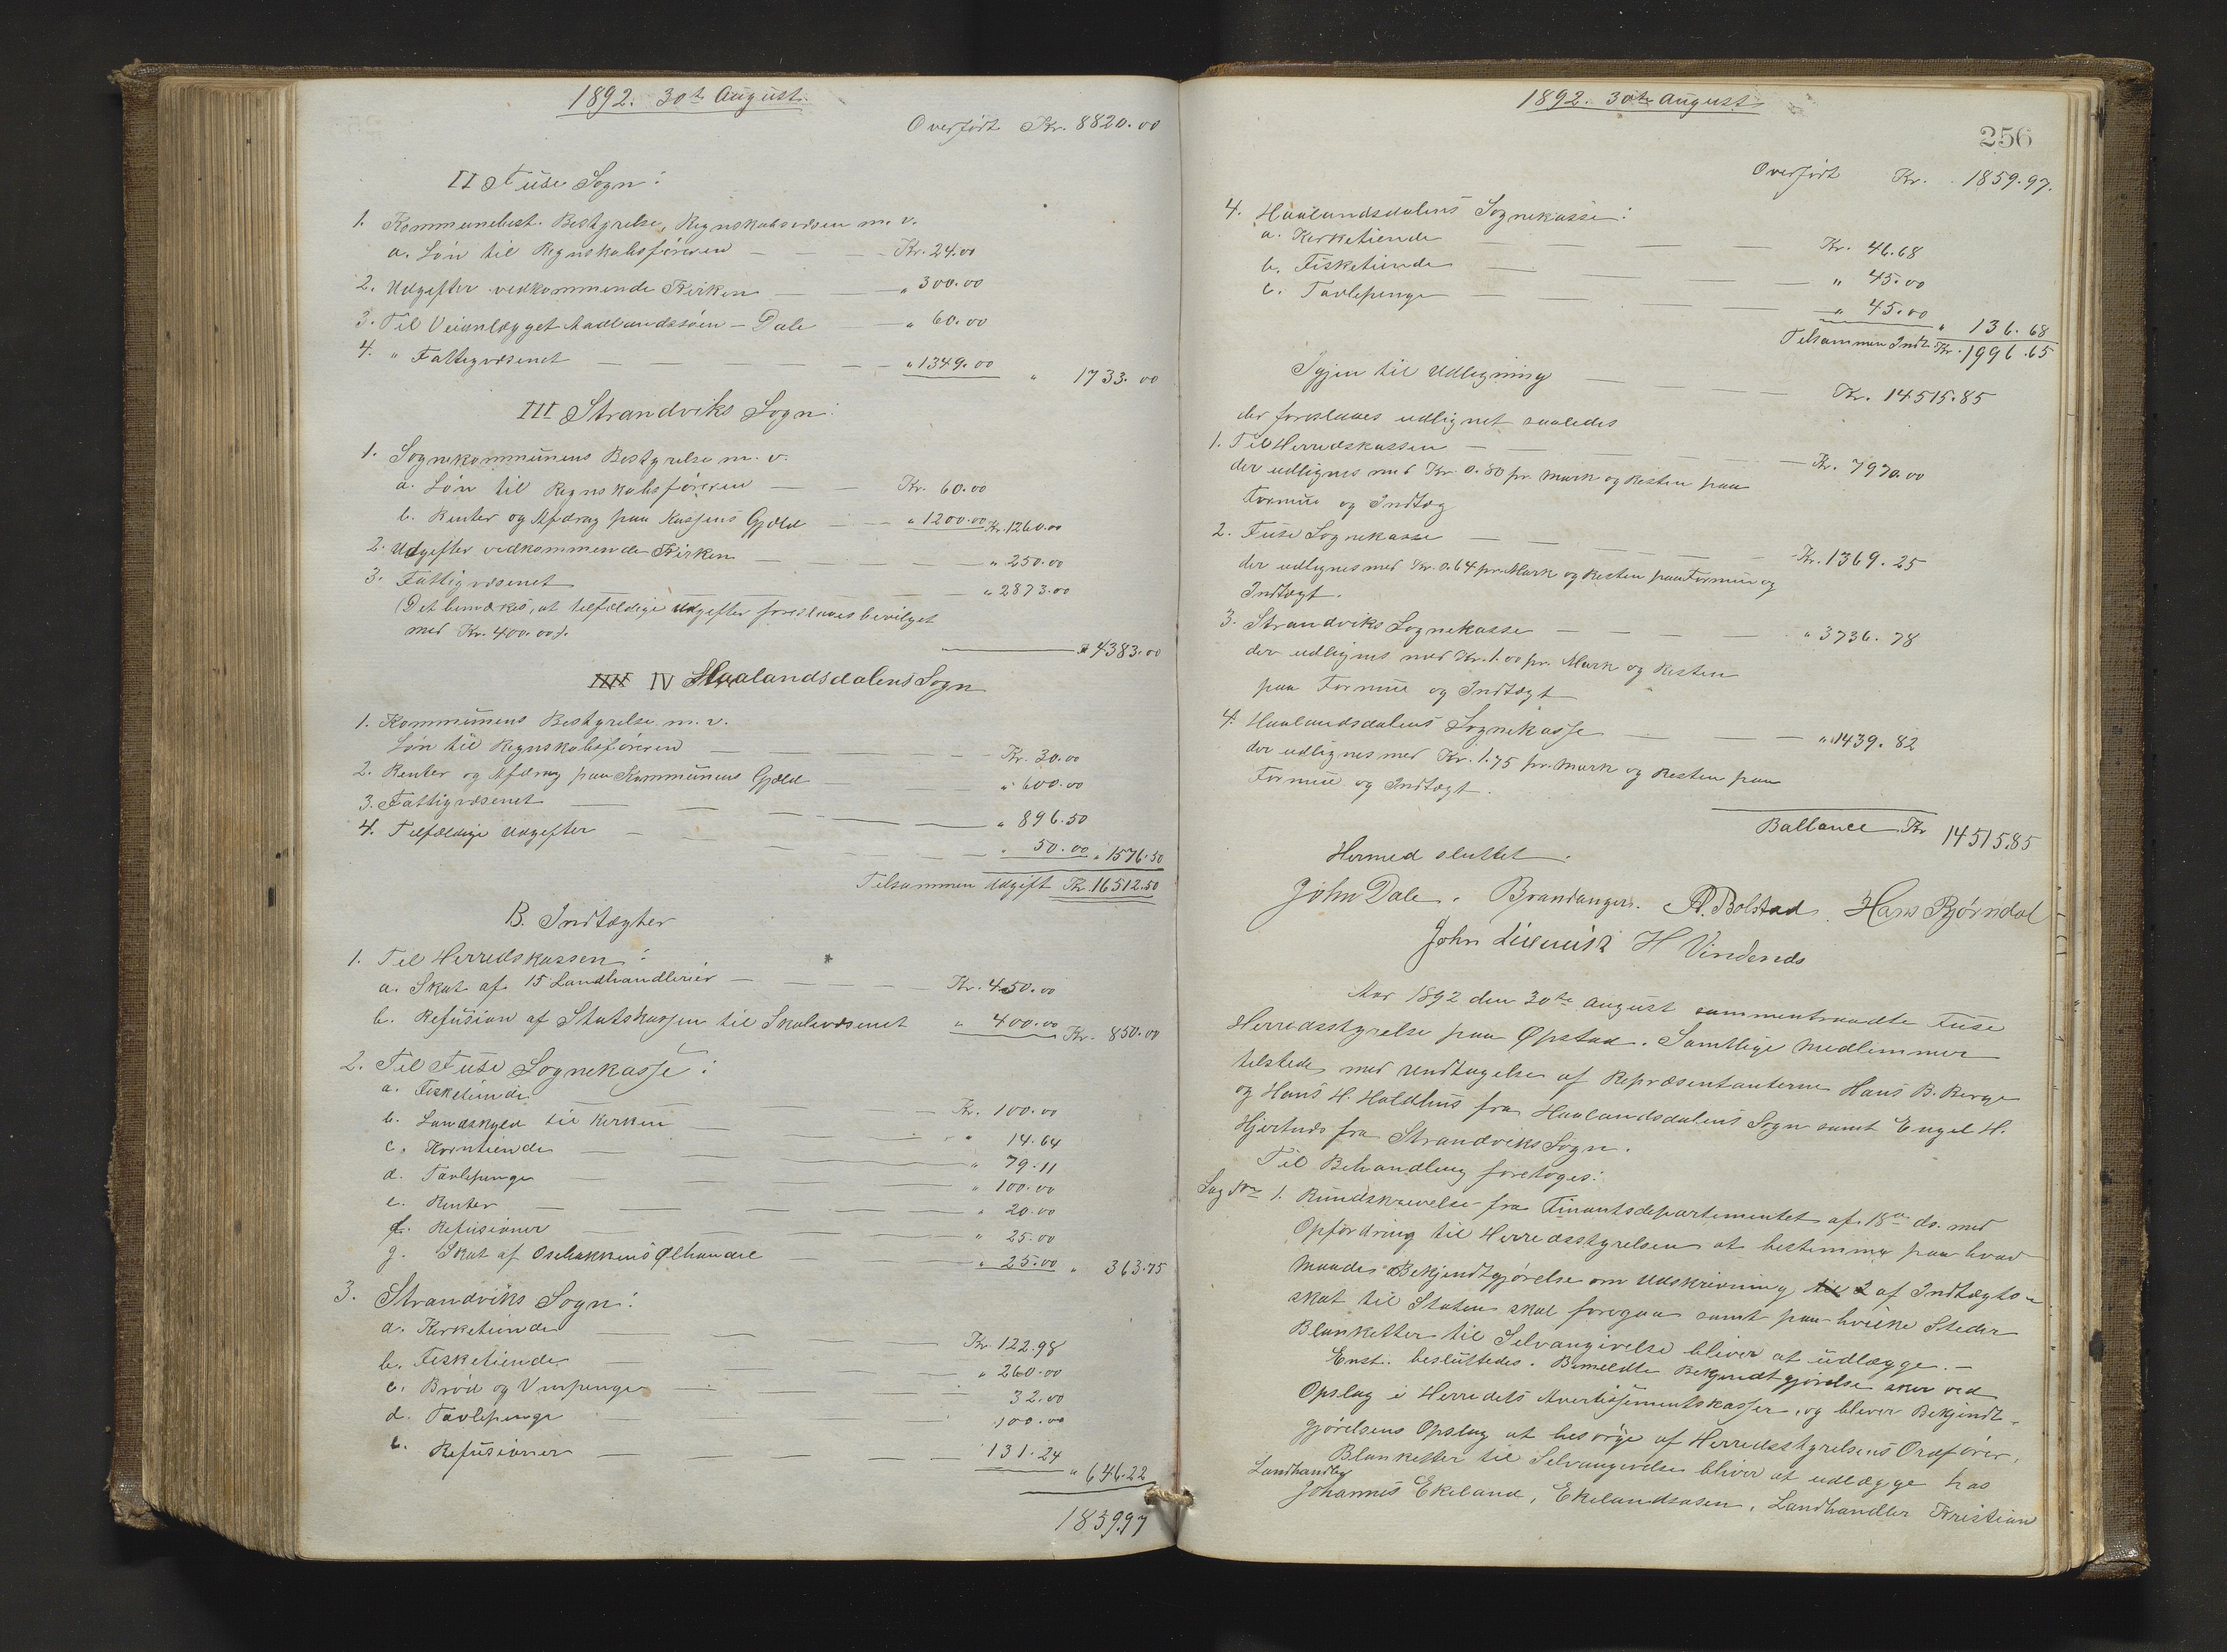 1892. 30te August.
Overført Kr. 8820.00
II Fuse Sogn:
1. Kommunebest. Bestyrelse, Regnskabsvæsen m. v.
a. Løn til Regnskabsføreren — — — Kr. 24.00
2. Udgifter vedkommende Kirken — — " 300.00
3. Til Veianlægget Aadlandssøen - Dale — " 60.00
4. " Fattigvæsenet — — — — " 1349.00 " 1733.00
III Strandviks Sogn:
1. Sognekommunens Bestyrelse m. v.
a. Løn til Regnskabsføreren — — Kr. 60.00
b. Renter og Afdrag paa Kassens Gjæld — — " 1200.00 Kr. 1260.00
2. Udgifter vedkommende Kirken — — — " 250.00
3. Fattigvæsenet — — — — " 2873.00
(Det bemærkes, at tilfældige Udgifter foreslaaes bevilget
med Kr. 400.00).
" 4383.00
IV Haalandsdalens Sogn
1. Kommunens Bestyrelse m. v.
Løn til Regnskabsføreren — — — — Kr. 30.00
2. Renter og Afdrag paa Kommunens Gjæld — — " 600.00
3. Fattigvæsenet — — — — — " 896.50
4. Tilfældige Udgifter — — — — " 50.00 " 1576.50
Tilsammen Udgift Kr. 16512.50
B. Indtægter
1. Til Herredskassen:
a. Skat af 15 Landhandlerier — — — — Kr. 450.00
b. Refusion af Statskassen til Skolevæsenet " 400.00 Kr. 850.00
2. Til Fuse Sognekasse:
a. Fisketiende — — — — Kr. 100.00
b. Landskyld til Kirken — — — " 14.64
c. Korntiende — — — — " 79.11
d. Tavlepenge — — — — " 100.00
e. Renter — — — — " 20.00
f. Refusioner — — — — " 25.00
g. Skat af Osebakkens Ølhandel — — " 25.00 " 363.75
3. Strandviks Sogn:
a. Kirketiende — — — — Kr. 122.98
b. Fisketiende — — — — " 260.00
c. Brød og Vinpenge — — — 32.00
d. Tavlepenge — — — 100.00
e. Refusioner — — — — 131.24
" 646.22
1859.97
1892. 30te August
256
Overført Kr. 1859.97.
4. Haalandsdalens Sognekasse:
a. Kirketiende — — — — Kr. 46.68
b. Fisketiende — — — — " 45.00
c. Tavlepenge — — — — " 45.00 " 136.68
Tilsammen Indt. Kr. 1996.65
Igjen til Udligning — — — — Kr. 14515.85
der foreslaaes udlignet saaledes
1. Til Herredskassen — — — — Kr. 7970.00
der udlignes med Kr. 0.80 pr. Mark og Resten paa
Formue og Indtæg
2. Fuse Sognekasse — — — — — Kr. 1369.25
der udlignes med Kr. 0.64 pr. Mark og Resten paa Formue og
Indtægt.
3. Strandviks Sognekasse — — — — " 3736.78
der udlignes med Kr. 1.00 pr. Mark og Resten
paa Formue og Indtægt
4. Haalandsdalens Sognekasse — — — " 1439.82
der udlignes med Kr. 1.75 pr. Mark og Resten paa
Formue og Indtægt.
Ballance Kr 14515.85
Hermed sluttet.
John Dale. Brandanger. A. Bolstad. Hans Bjørndal
John H Vindenes
Aar 1892 den 30te August sammentraadte Fuse
Herredsstyrelse paa Øpstad. Samtlige Medlemmer
tilstede med undtagelse af Repræsentanterne Hans B. Berge
og Hans H. Holdhus fra Haalandsdalens Sogn samt Engel H.
Hjertnes fra Strandviks Sogn.
Til Behandling foretoges:
Sag No 1. Rundskrivelse fra Finantsdepartementet af 18de ds. med
Opfordring til Herredsstyrelsen at bestemme paa hvad
Maade Bekjendtgjørelse om Udskrivning af Indtægts-
skat til Staten skal foregaa samt paa hvilke Steder
Blanketter til Selvangivelse bliver at udlægge. —
Enst. besluttedes. Bemeldte Bekjendtgjørelse sker ved
Opslag i Herredets Avertissementskasser, og bliver Bekjendt-
gjørelsens Opslag at besørge af Herredsstyrelsens Ordfører.
Blanketter til Selvangivelse bliver at udlægge hos
Landhandler
Johannes Ekeland, Ekelandsosen, Landhandler Kristian